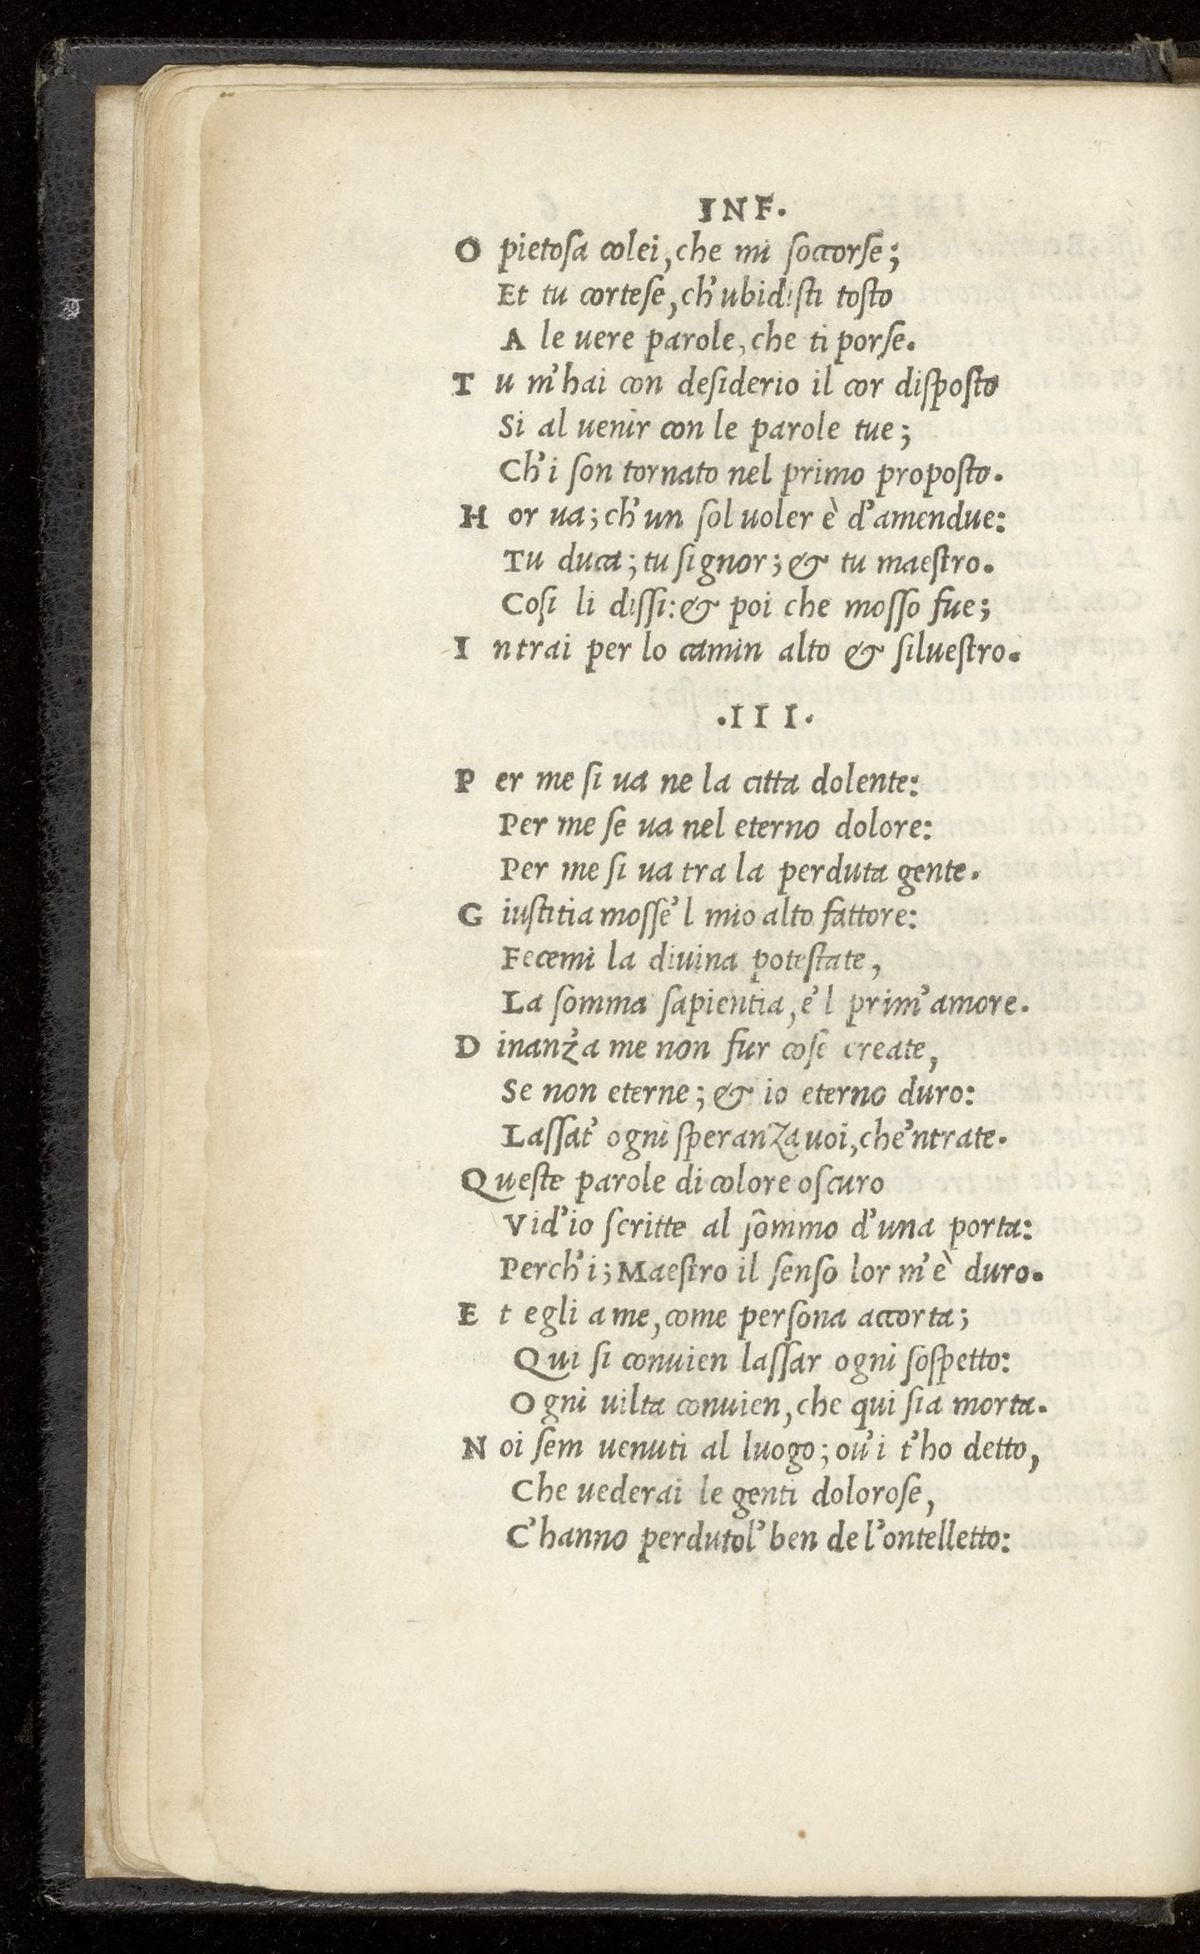 INF.
O pietosa colei, che mi soccorse;
Et tu cortese, ch'ubidisti tosto
A le uere parole, che ti porse.
T u m'hai con desiderio il cor disposto
Si al uenir con le parole tue;
Ch'i son tornato nel primo proposto.
H or ua; ch'un sol uoler è d'amendue:
Tu duca; tu signor; & tu maestro.
Cosi li dissi: & poi che mosso fue;
I ntrai per lo camin alto & siluestro.
.III.
P er me si ua ne la citta dolente:
Per me se ua nel eterno dolore:
Per me si ua tra la perduta gente.
G iustitia mosse'l mio alto fattore:
Fecemi la diuina potestate,
La somma sapientia, e'l prim'amore.
D inanz'a me non fur cose create,
Se non eterne; & io eterno duro:
Lassat' ogni speranza uoi, che'ntrate.
Queste parole di colore oscuro
Vid'io scritte al sõmmo d'una porta:
Perch'i; Maestro il senso lor m'è duro.
E t egli a me, come persona accorta;
Qui si conuien lassar ogni sospetto:
Ogni uilta conuien, che qui sia morta.
N oi sem uenuti al luogo; ou'i t'ho detto,
Che uederai le genti dolorose,
C'hanno perdutol'ben de l'ontelletto: